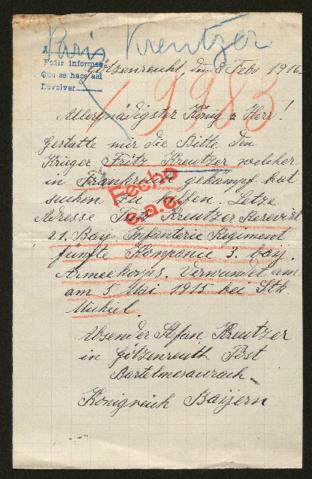 Paris Kreutzer
A
Pedir informes
Que se hace así
Devolver
Götzenreuth, den 8. Febr. 1916.
19983
Allergnädigster König u Herr!
Gestatte mir die Bitte den
Krieger Fritz Kreutzer welcher
in Frankreich gekämpf hat
suchen zu lassen. Letze
Adresse Kreutzer Reservist
21. Bay. Infanterie Regiment
fünfte Kompanie 3. bay.
Armeekorps. Verwundet am
am 5 Mai 1915 bei St.
Michiel.
Fecho
Absender Stefan Kreutzer
in Götzenreuth Post
Bartelmesaurach
Königreich Baÿern